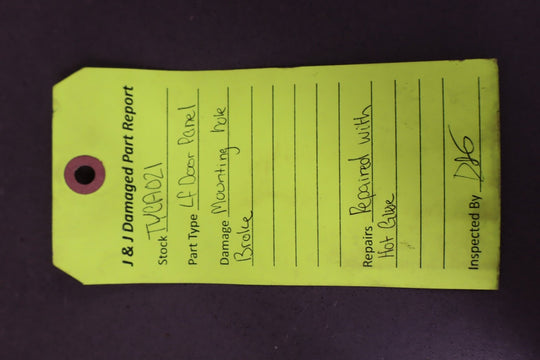 J & J Damaged Part Report
Stock TYCA021
Part Type LF Door Panel
Damage Mounting hole
Broke
Repairs Repaired with
Hot Glue
Inspected By